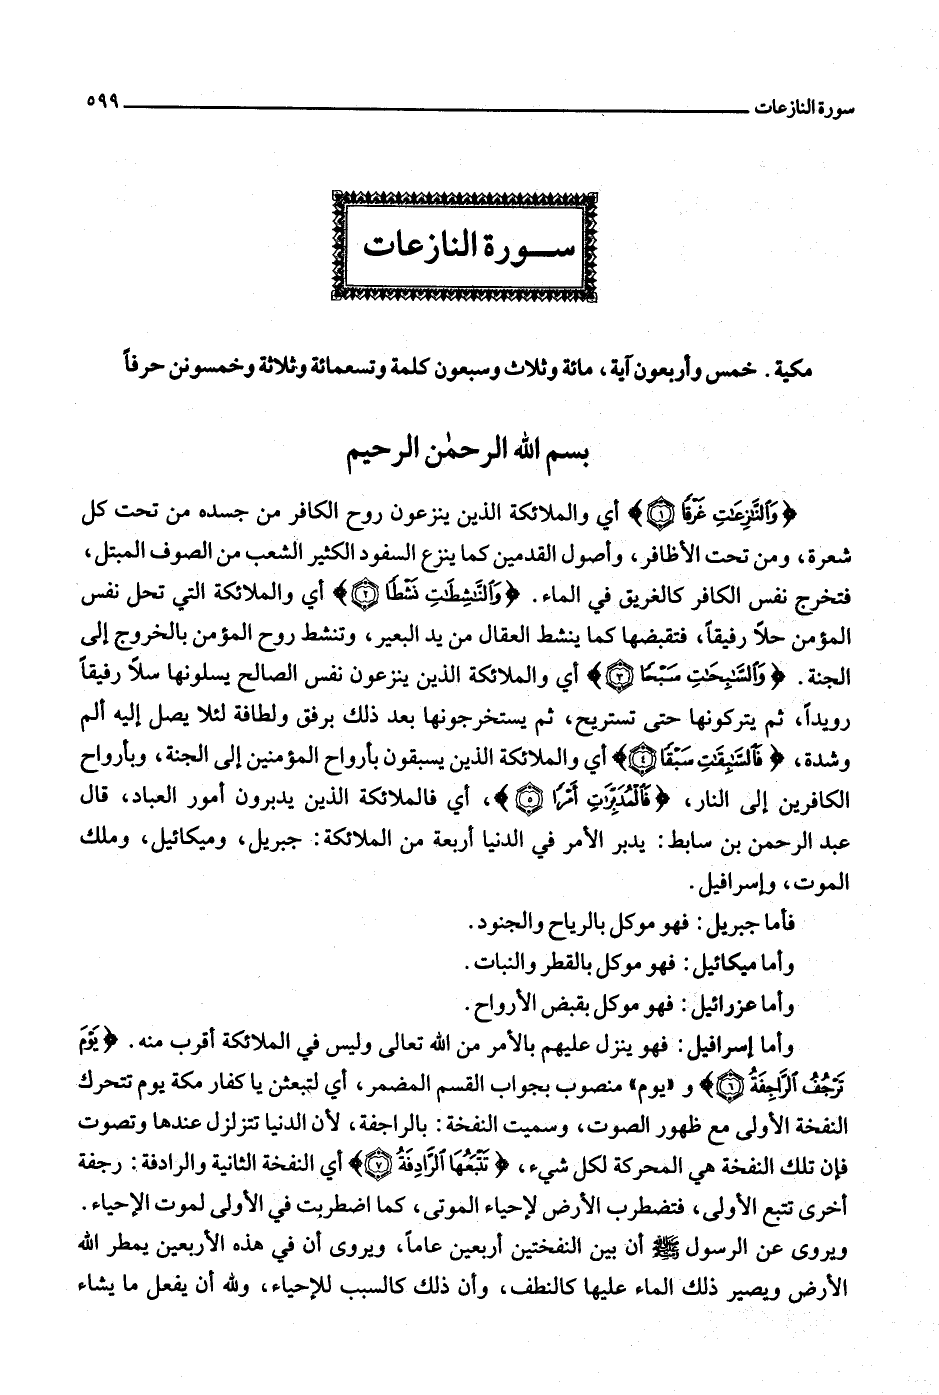 سورة النازعات ٥٩٩
ســورة النازعات
مكية . خمس وأربعون آية ، مائة وثلاث وسبعون كلمة وتسعمائة وثلاثة وخمسونن حرفاً
بسم الله الرحمٰن الرحيم
﴿ وَٱلنَّٰزِعَٰتِ غَرْقًا ۝١ ﴾ أي والملائكة الذين ينزعون روح الكافر من جسده من تحت كل
شعرة ، ومن تحت الأظافر ، وأصول القدمين كما ينزع السفود الكثير الشعب من الصوف المبتل ،
فتخرج نفس الكافر كالغريق في الماء . ﴿ وَٱلنَّٰشِطَٰتِ نَشْطًا ۝٢ ﴾ أي والملائكة التي تحل نفس
المؤمن حلاً رفيقاً ، فتقبضها كما ينشط العقال من يد البعير ، وتنشط روح المؤمن بالخروج إلى
الجنة . ﴿ وَٱلسَّٰبِحَٰتِ سَبْحًا ۝٣ ﴾ أي والملائكة الذين ينزعون نفس الصالح يسلونها سلاً رفيقاً
رويداً ، ثم يتركونها حتى تستريح ، ثم يستخرجونها بعد ذلك برفق ولطافة لئلا يصل إليه ألم
وشدة ، ﴿ فَٱلسَّٰبِقَٰتِ سَبْقًا ۝٤ ﴾ أي والملائكة الذين يسبقون بأرواح المؤمنين إلى الجنة ، وبأرواح
الكافرين إلى النار ، ﴿ فَٱلْمُدَبِّرَٰتِ أَمْرًا ۝٥ ﴾ ، أي فالملائكة الذين يدبرون أمور العباد ، قال
عبد الرحمن بن سابط : يدبر الأمر في الدنيا أربعة من الملائكة : جبريل ، وميكائيل ، وملك
الموت ، وإسرافيل .
فأما جبريل : فهو موكل بالرياح والجنود .
وأما ميكائيل : فهو موكل بالقطر والنبات .
وأما عزرائيل : فهو موكل بقبض الأرواح .
وأما إسرافيل : فهو ينزل عليهم بالأمر من الله تعالى وليس في الملائكة أقرب منه . ﴿ يَوْمَ
تَرْجُفُ ٱلرَّاجِفَةُ ۝٦ ﴾ و «يوم» منصوب بجواب القسم المضمر ، أي لتبعثن يا كفار مكة يوم تتحرك
النفخة الأولى مع ظهور الصوت ، وسميت النفخة : بالراجفة ، لأن الدنيا تتزلزل عندها وتصوت
فإن تلك النفخة هي المحركة لكل شيء ، ﴿ تَتْبَعُهَا ٱلرَّادِفَةُ ۝٧ ﴾ أي النفخة الثانية والرادفة : رجفة
أخرى تتبع الأولى ، فتضطرب الأرض لإحياء الموتى ، كما اضطربت في الأولى لموت الإحياء .
ويروى عن الرسول ﷺ أن بين النفختين أربعين عاماً ، ويروى أن في هذه الأربعين يمطر الله
الأرض ويصير ذلك الماء عليها كالنطف ، وأن ذلك كالسبب للإحياء ، ولله أن يفعل ما يشاء